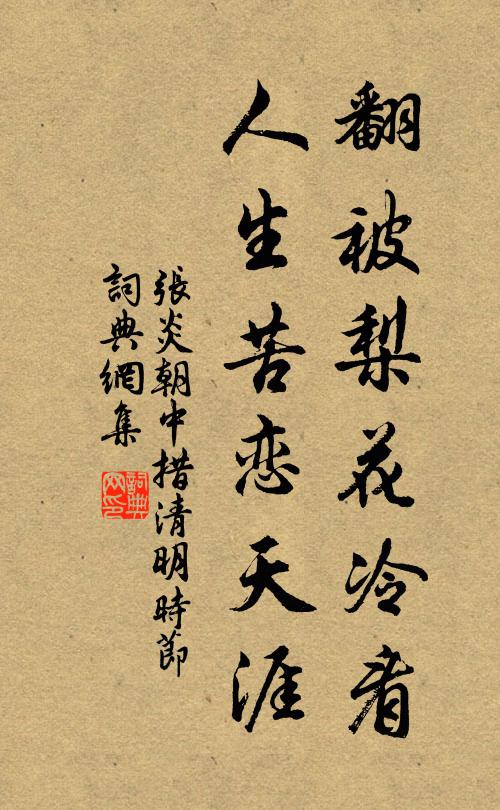 翻被梨花冷看
人生苦恋天涯
張炎朝中措清明時節
詞典網集
詞典网印